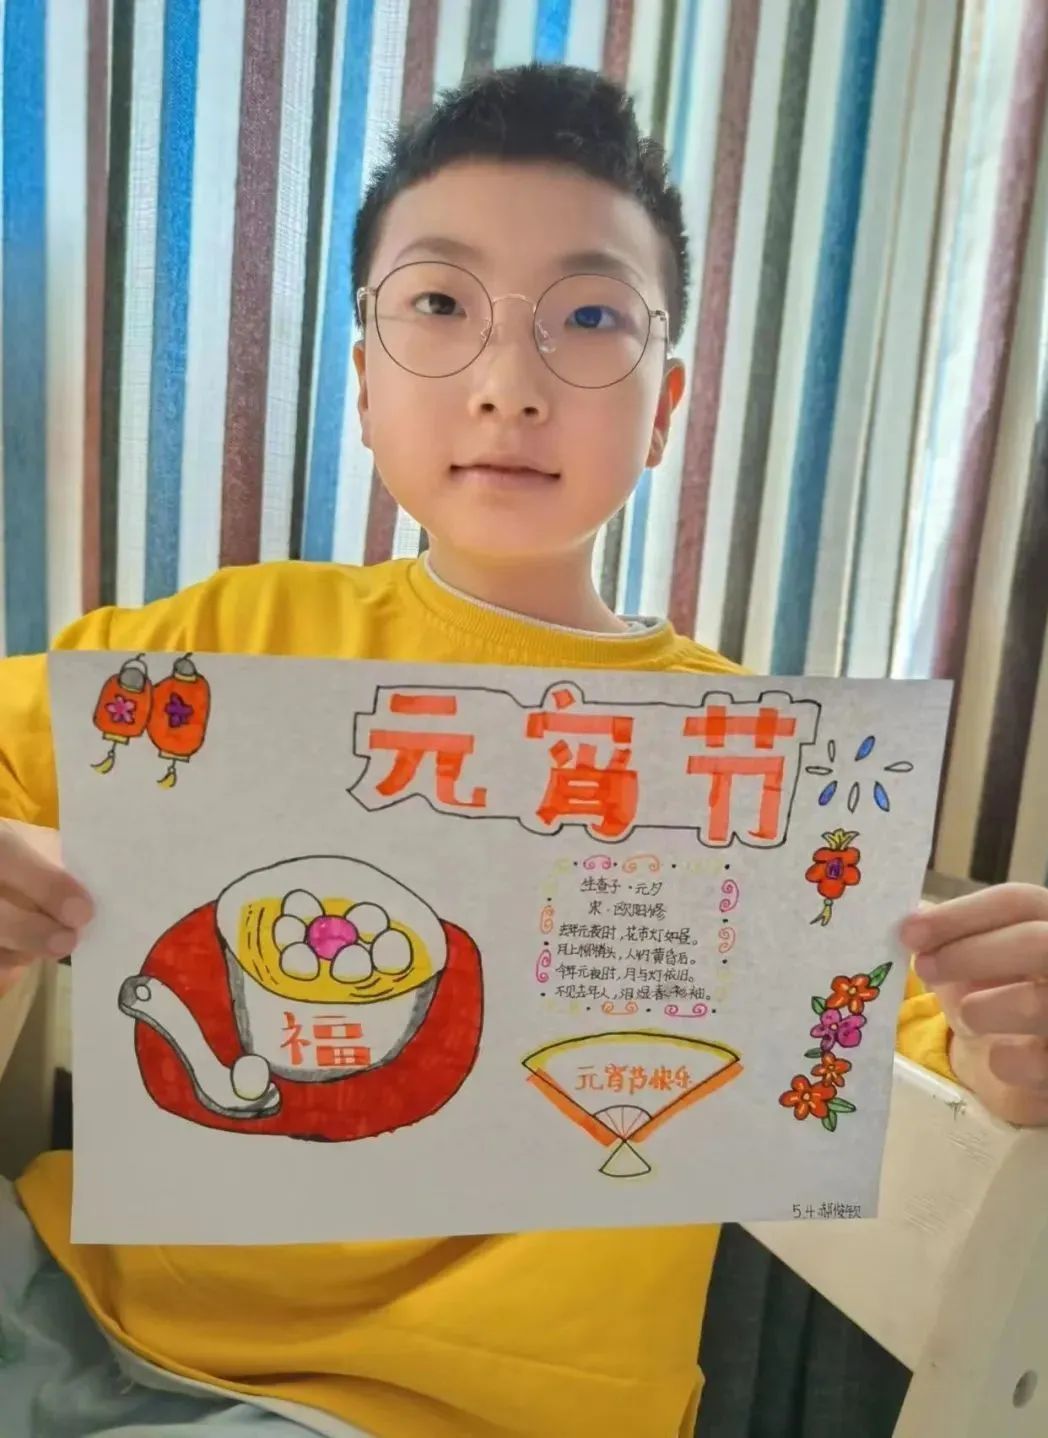 元宵节
生查子·元夕
宋·欧阳修
去年元夜时，花市灯如昼。
月上柳梢头，人约黄昏后。
今年元夜时，月与灯依旧。
不见去年人，泪湿春衫袖。
福
元宵节快乐
5.4 郝俊